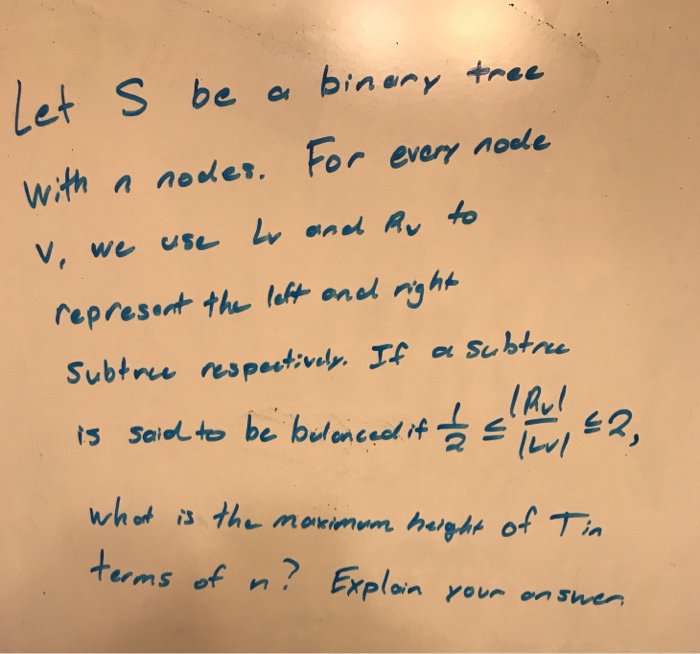 Let S be a binary tree
with n nodes. For every node
v, we use Lv and Rv to
represent the left and right
Subtree respectively. If a subtree
is said to be balanced if 1/2 ≤ |Rv|/|Lv| ≤ 2,
what is the maximum height of T in
terms of n? Explain your answer